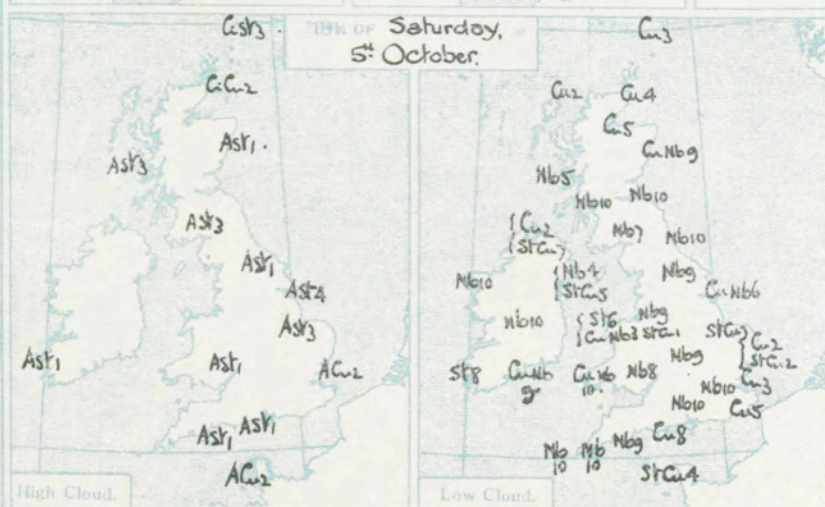 Saturday,
5th October.
CiSt3
CiCu2
Ast1
Ast3
Ast3
Ast1
Ast4
Ast3
Ast1
Ast1
ACu2
Ast1
Ast1
ACu2
High Cloud.
Cu3
Cu2
Cu4
Cu5
CuNb9
Nb5
Nb10
Nb10
Cu2
StCu7
Nb7
Nb10
Nb10
Nb4
StCu5
Nb9
CuNb6
Nb10
St6
CuNb3
Nb9
StCu1
StCu9
Cu2
StCu2
St8
CuNb
9
CuNb
10
Nb8
Nb9
Nb10
Cu3
Nb10
Cu5
Nb
10
Nb
10
Nb9
Cu8
StCu4
Low Cloud.